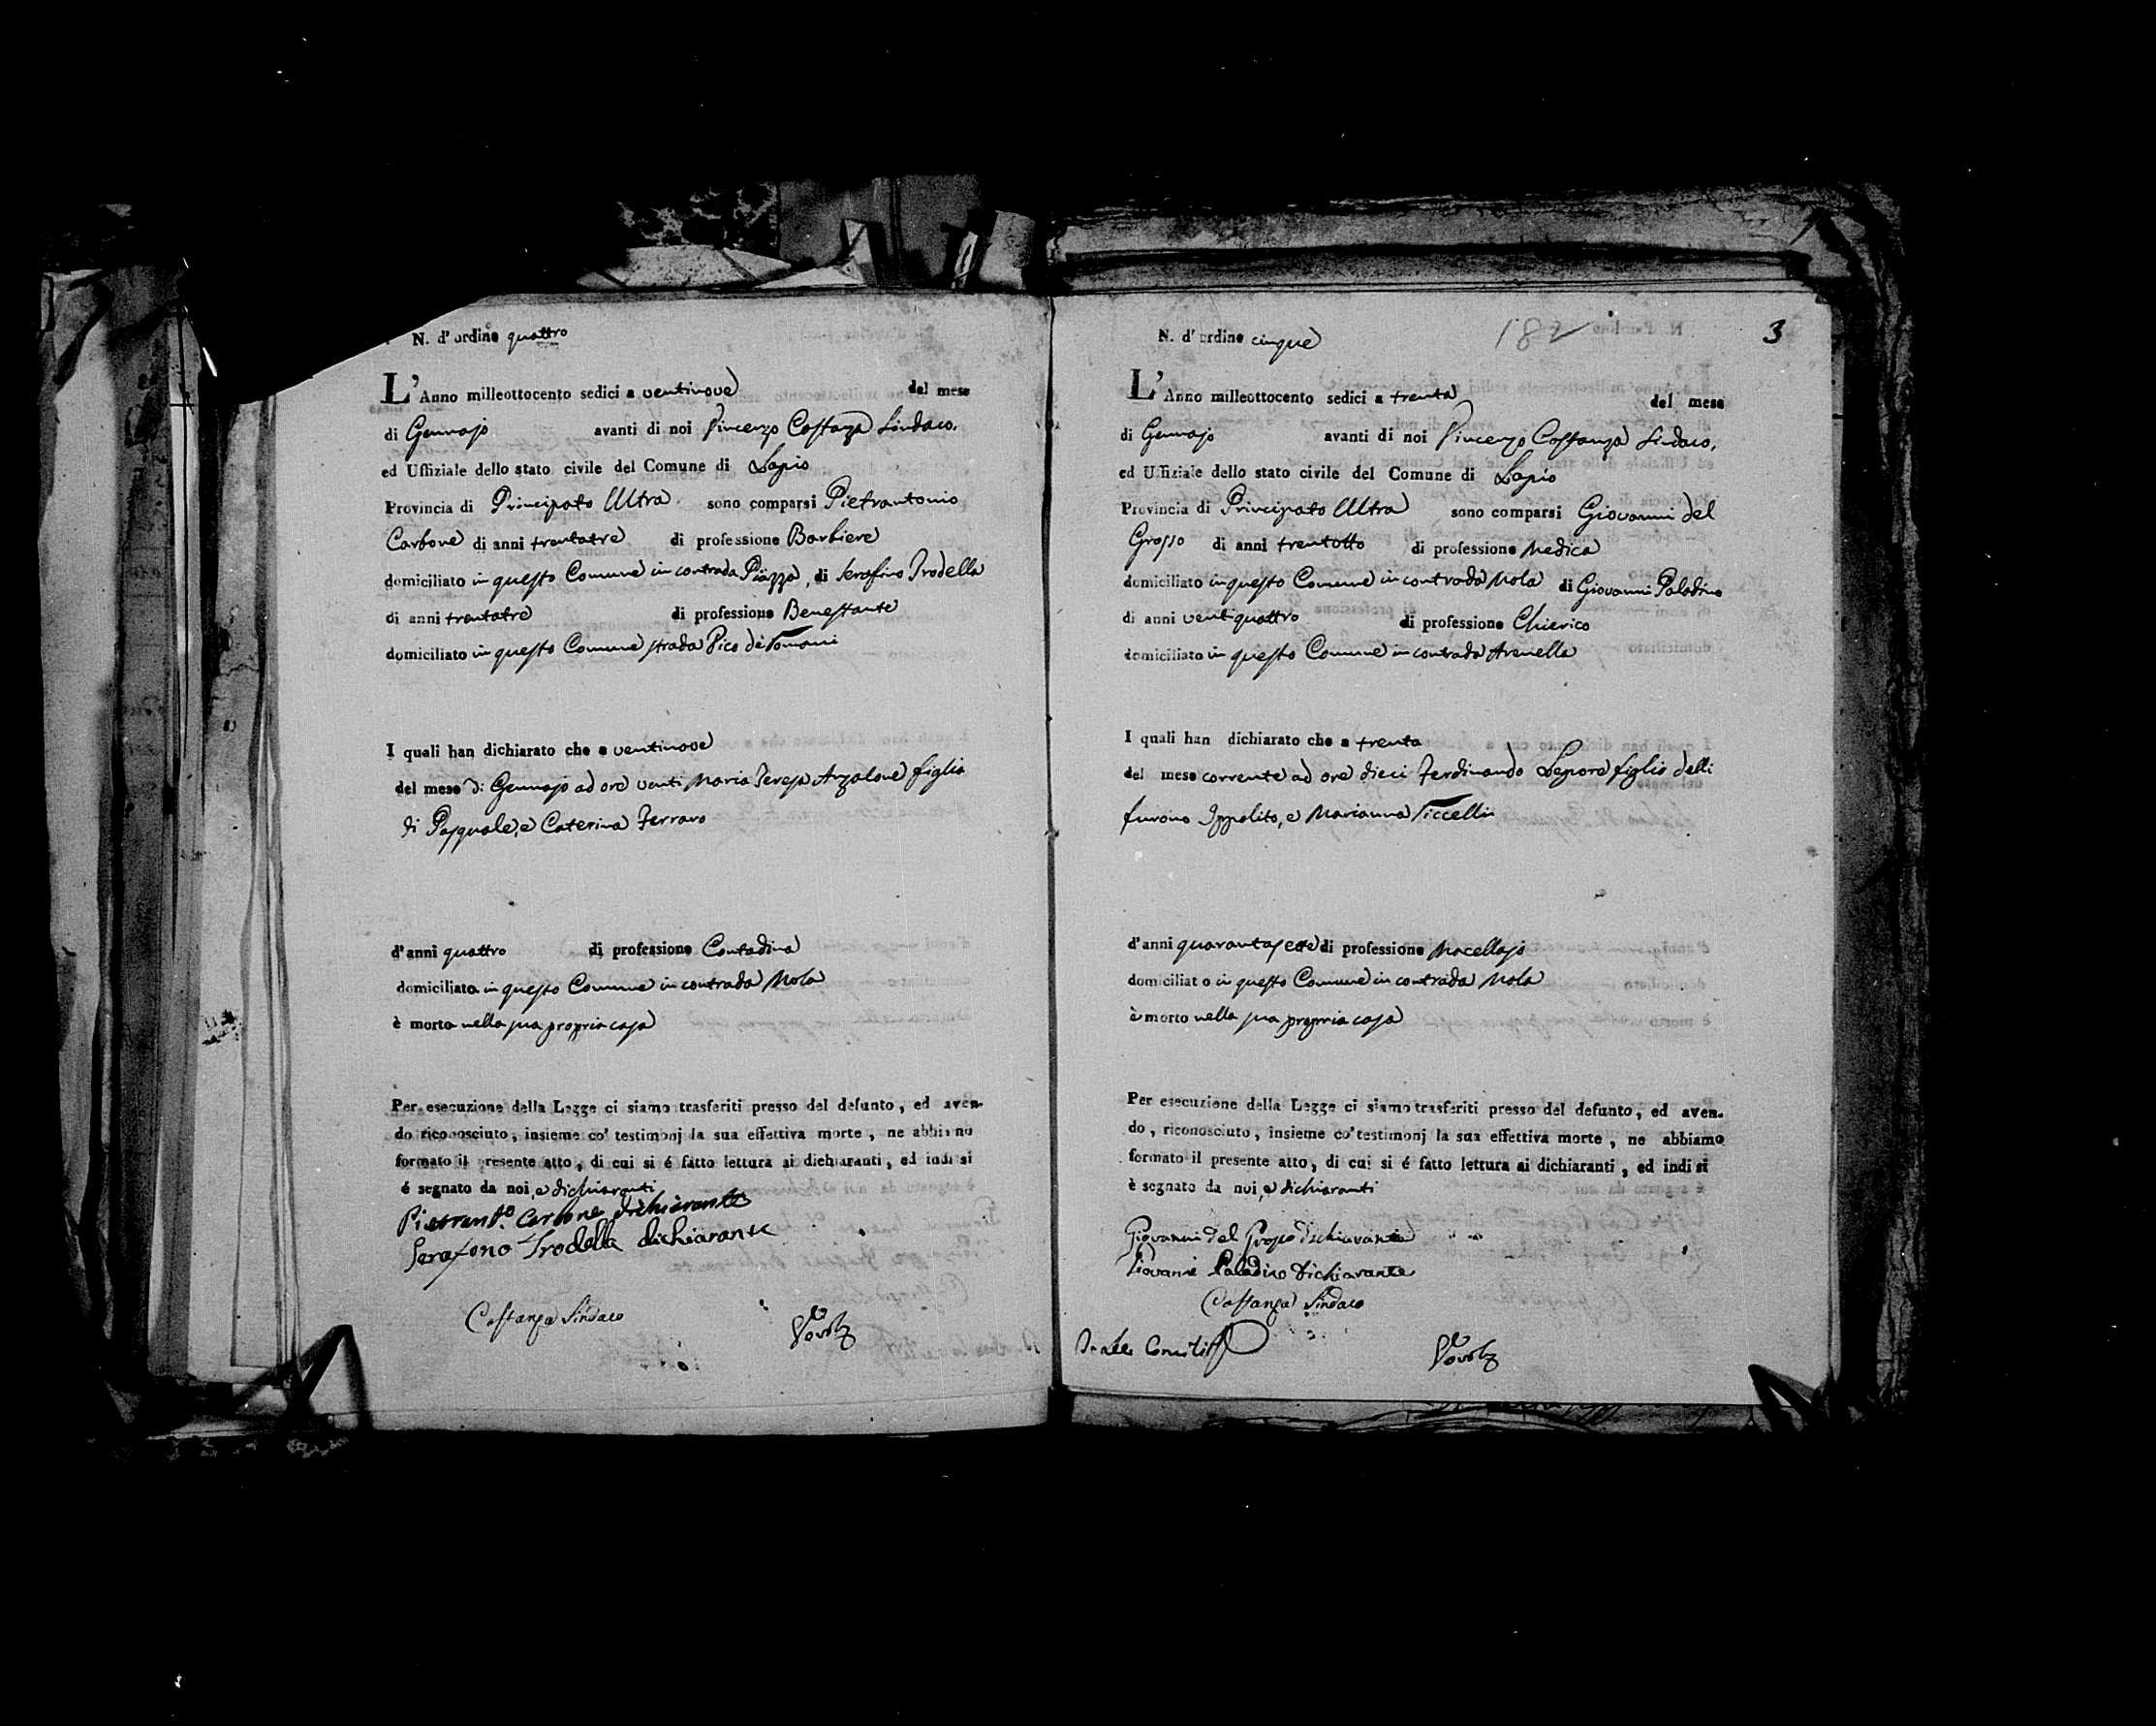 N. d'ordine quattro
L'Anno milleottocento sedici a ventinove del mese
di Gennajo avanti di noi Vincenzo Costanza Sindaco,
ed Uffiziale dello stato civile del Comune di Lapio
Provincia di Principato Ultra sono comparsi Pietrantonio
Carbone di anni trentatre di professione Barbiere
domiciliato in questo Comune in contrada Piazza, di Serafino Trodella
di anni trentatre di professione Benestante
domiciliato in questo Comune strada Pico de
I quali han dichiarato che a ventinove
del mese di Gennajo ad ore venti Maria Teresa Anzalone figlia
di Pasquale, e Caterina Ferraro
d'anni quattro di professione Contadina
domiciliata in questo Comune in contrada Mola
è morta nella sua propria casa
Per esecuzione della Legge ci siamo trasferiti presso del defunto, ed aven-
do riconosciuto, insieme co' testimonj la sua effettiva morte, ne abbiano
formato il presente atto, di cui si é fatto lettura ai dichiaranti, ed indi si
é segnato da noi, e dichiaranti
Pietrant.o Carbone dichiarante
Serafono Trodella dichiarante
Costanza Sindaco
N. d'ordine cinque
182
3
L'Anno milleottocento sedici a trenta del mese
di Gennajo avanti di noi Vincenzo Costanza Sindaco,
ed Uffiziale dello stato civile del Comune di Lapio
Provincia di Principato Ultra sono comparsi Giovanni del
Grosso di anni trentotto di professione Medica
domiciliato in questo Comune in contrada Mola di Giovanni Paladino
di anni ventiquattro di professione Chierico
domiciliato in questo Comune in contrada Arenella
I quali han dichiarato che a trenta
del mese corrente ad ore dieci Ferdinando Lepore figlio delli
furono Ippolito, e Marianna
d'anni quarantasette di professione Macellajo
domiciliato in questo Comune in contrada Mola
è morto nella sua propria casa
Per esecuzione della Legge ci siamo trasferiti presso del defunto, ed aven-
do, riconosciuto, insieme co' testimonj la sua effettiva morte, ne abbiamo
formato il presente atto, di cui si é fatto lettura ai dichiaranti, ed indi si
è segnato da noi, e dichiaranti
Giovanni del Grosso Dichiarante
Giovanni Paladino Dichiarante
Costanza Sindaco